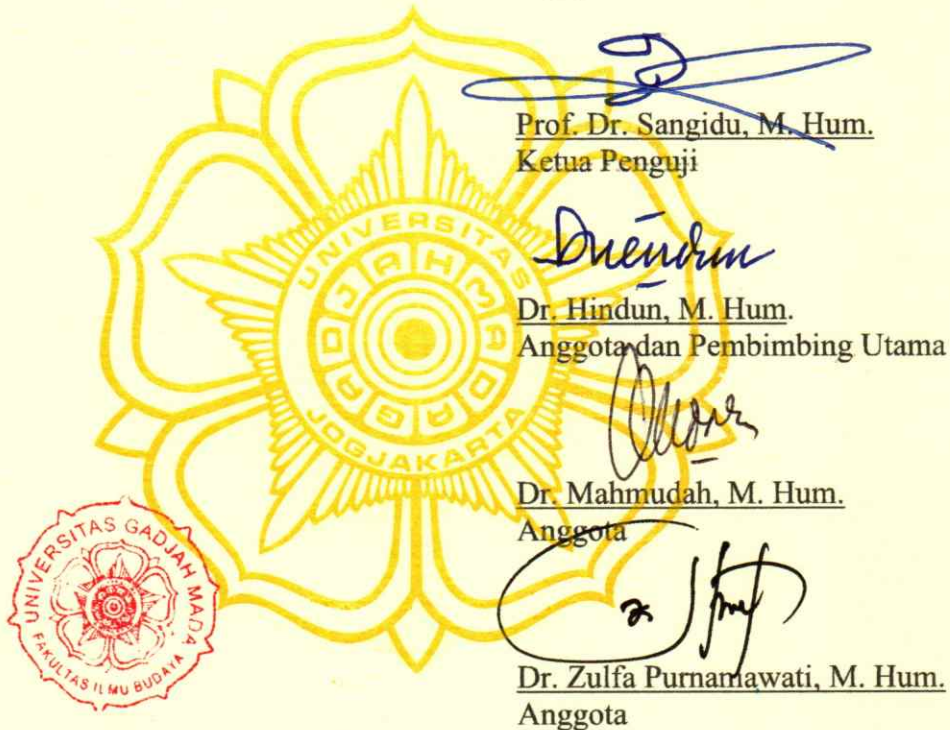 Prof. Dr. Sangidu, M. Hum.
Ketua Penguji
Dr. Hindun, M. Hum.
Anggota dan Pembimbing Utama
Dr. Mahmudah, M. Hum.
Anggota
Dr. Zulfa Purnamawati, M. Hum.
Anggota
UNIVERSITAS
GADJAH MADA
JOGJAKARTA
UNIVERSITAS GADJAH MADA
FAKULTAS ILMU BUDAYA